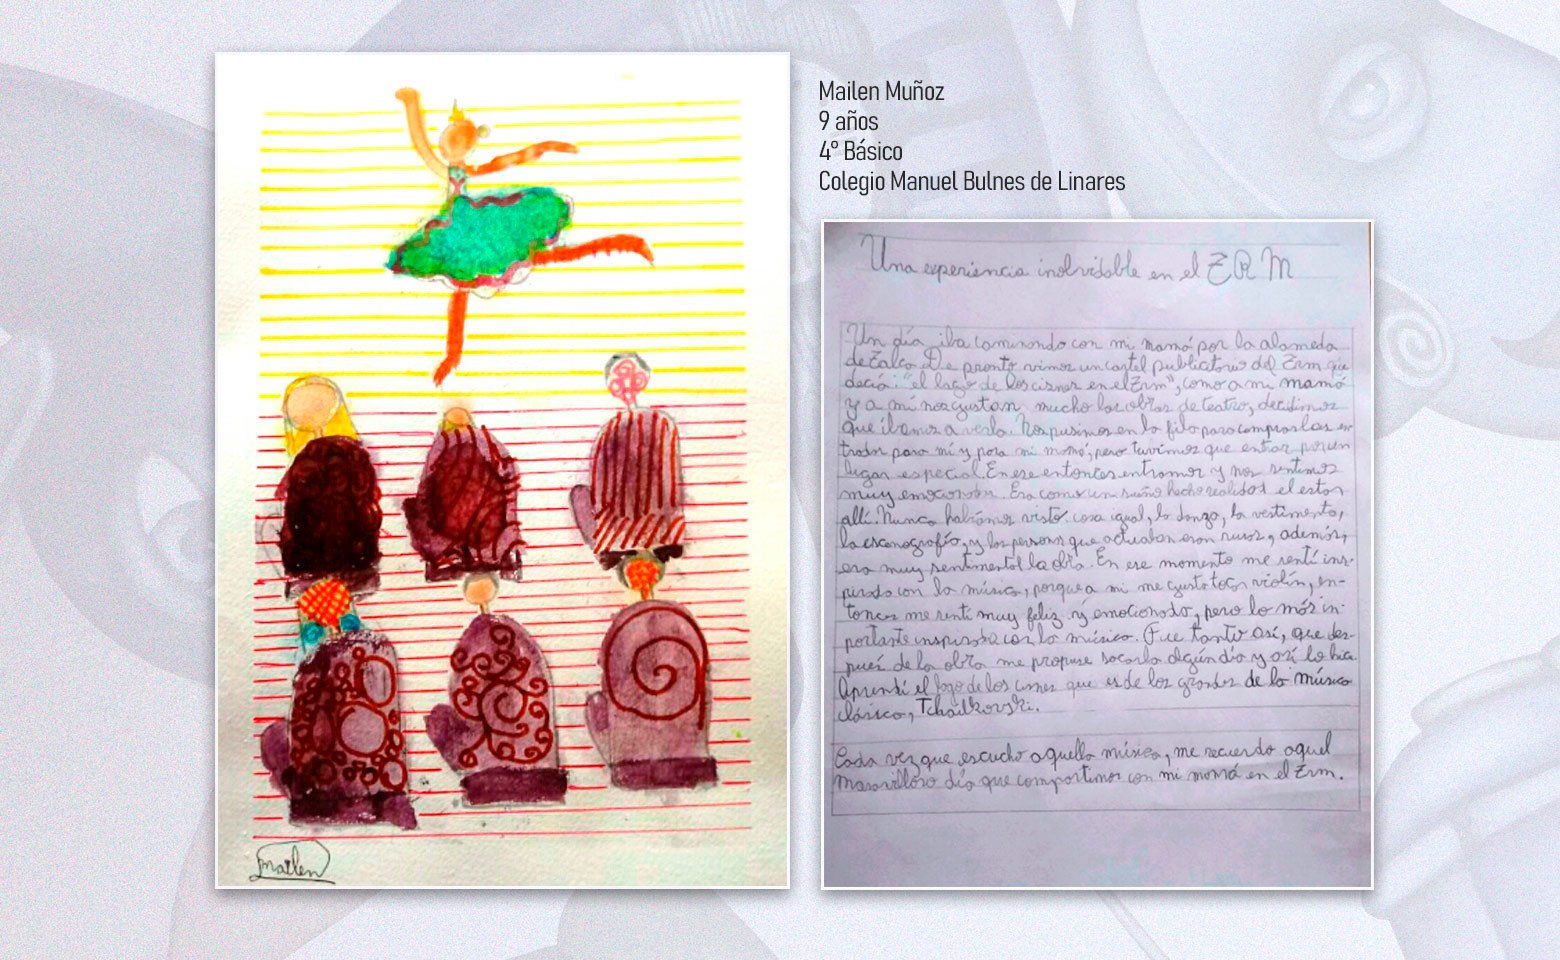 Mailen Muñoz
9 años
4º Básico
Colegio Manuel Bulnes de Linares
Una experiencia inolvidable en el TRM
Un día iba caminando con mi mamá por la alameda
de Talca. De pronto vimos un cartel publicitario del Trm que
decía: "el lago de los cisnes en el Trm", como a mi mamá
y a mí nos gustan mucho las obras de teatro, decidimos
que íbamos a verla. Nos pusimos en la fila para comprar las en
tradas para mí y para mi mamá, pero tuvimos que entrar por un
lugar especial. En ese entonces entramos y nos sentimos
muy emocionadas. Era como un sueño hecho realidad el estar
allí. Nunca habíamos visto cosa igual, la danza, la vestimenta,
la escenografía, y las personas que actuaban eran rusos, además,
era muy sentimental la obra. En ese momento me sentí ins-
pirada con la música, porque a mi me gusta tocar violín, en-
tonces me sentí muy feliz y emocionada, pero lo más im-
portante inspirada con la música. Fue tanto así, que des-
pués de la obra me propuse tocarla algún día y así lo hice.
Aprendí el lago de los cisnes que es de los grandes de la música
clásica, Tchaikovski.
Cada vez que escucho aquella música, me recuerdo aquel
maravilloso día que compartimos con mi mamá en el Trm.
mailen